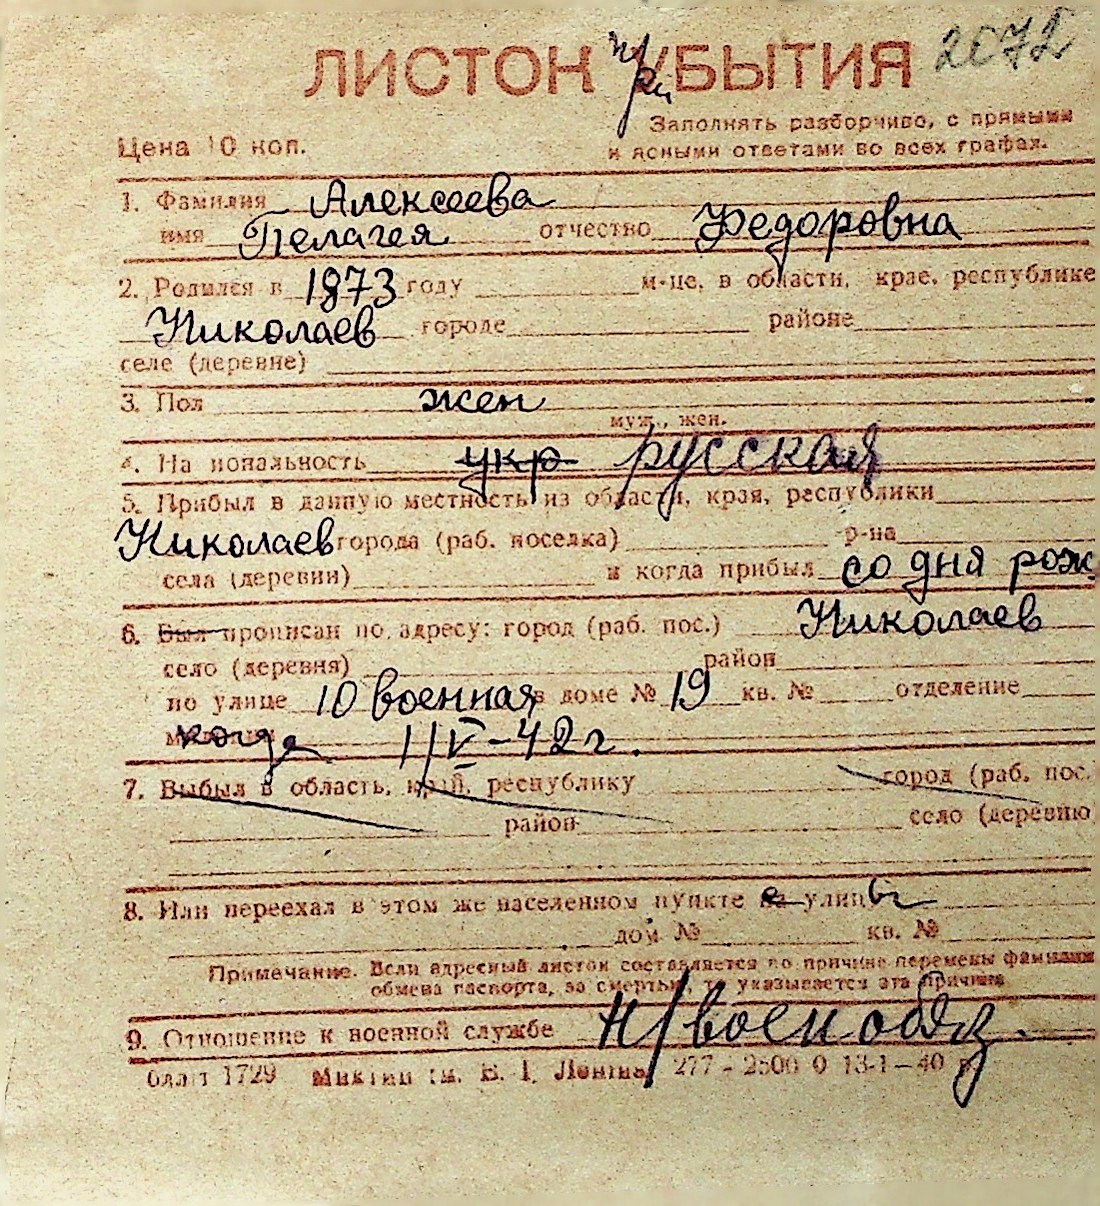 ЛИСТОК УБЫТИЯ 2072
при
Цена 10 коп.
Заполнять разборчиво, с прямыми
и ясными ответами во всех графах.
1. Фамилия Алексеева
имя Пелагея отчество Федоровна
2. Родился в 1873 году м-це, в области, крае, республике
Николаев городе районе
селе (деревне)
3. Пол жен
муж., жен.
4. На иональность укр русская
5. Прибыл в данную местность из области, края, республики
Николаев города (раб. поселка) р-на
села (деревни) и когда прибыл со дня рож
6. Был прописан по адресу: город (раб. пос.) Николаев
село (деревня) район
по улице 10 военная в доме № 19 кв. № отделение
когда 1/V-42 г.
7. Выбыл в область, край, республику город (раб. пос.
район село (деревню)
8. Или переехал в этом же населенном пункте с улицы
дом № кв. №
Примечание. Если адресный листок составляется по причине перемены фамилии
обмена паспорта, за смертью, то указывается эта причина
9. Отношение к военной службе н/военобяз.
1729 277 - 2500 0 13-1-40 р